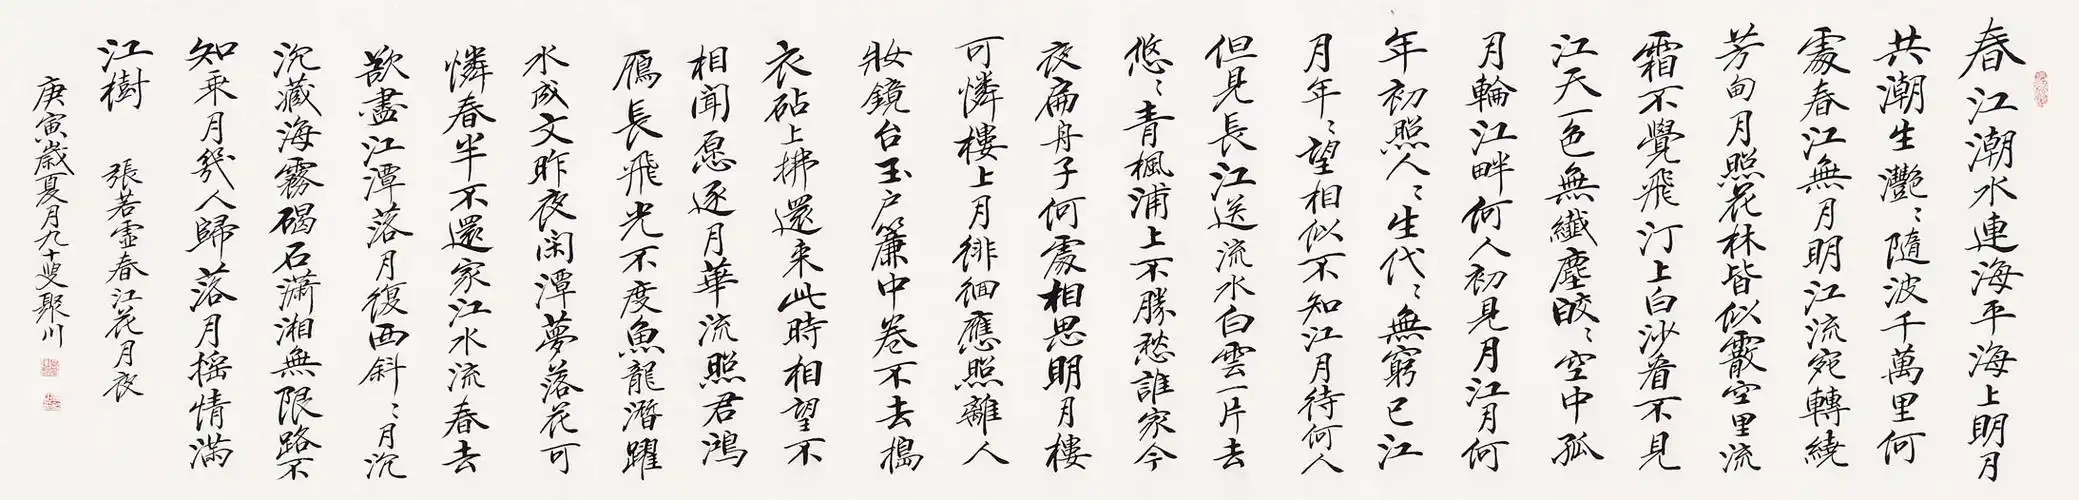 春江潮水連海平海上明月
共潮生灔〻隨波千萬里何
處春江無月明江流宛轉繞
芳甸月照花林皆似霰空里流
霜不覺飛汀上白沙看不見
江天一色無纖塵皎〻空中孤
月輪江畔何人初見月江月何
年初照人〻生代〻無窮已江
月年〻望相似不知江月待何人
但見長江送流水白雲一片去
悠〻青楓浦上不勝愁誰家今
夜扁舟子何處相思明月樓
可憐樓上月徘徊應照離人
妝鏡台玉戶簾中卷不去搗
衣砧上拂還來此時相望不
相聞愿逐月華流照君鴻
雁長飛光不度魚龍潛躍
水成文昨夜闲潭夢落花可
憐春半不還家江水流春去
欲盡江潭落月復西斜〻月沉
沉藏海霧碣石瀟湘無限路不
知乘月幾人歸落月搖情滿
江樹 張若虛春江花月夜
庚寅歲夏月九十叟聚川